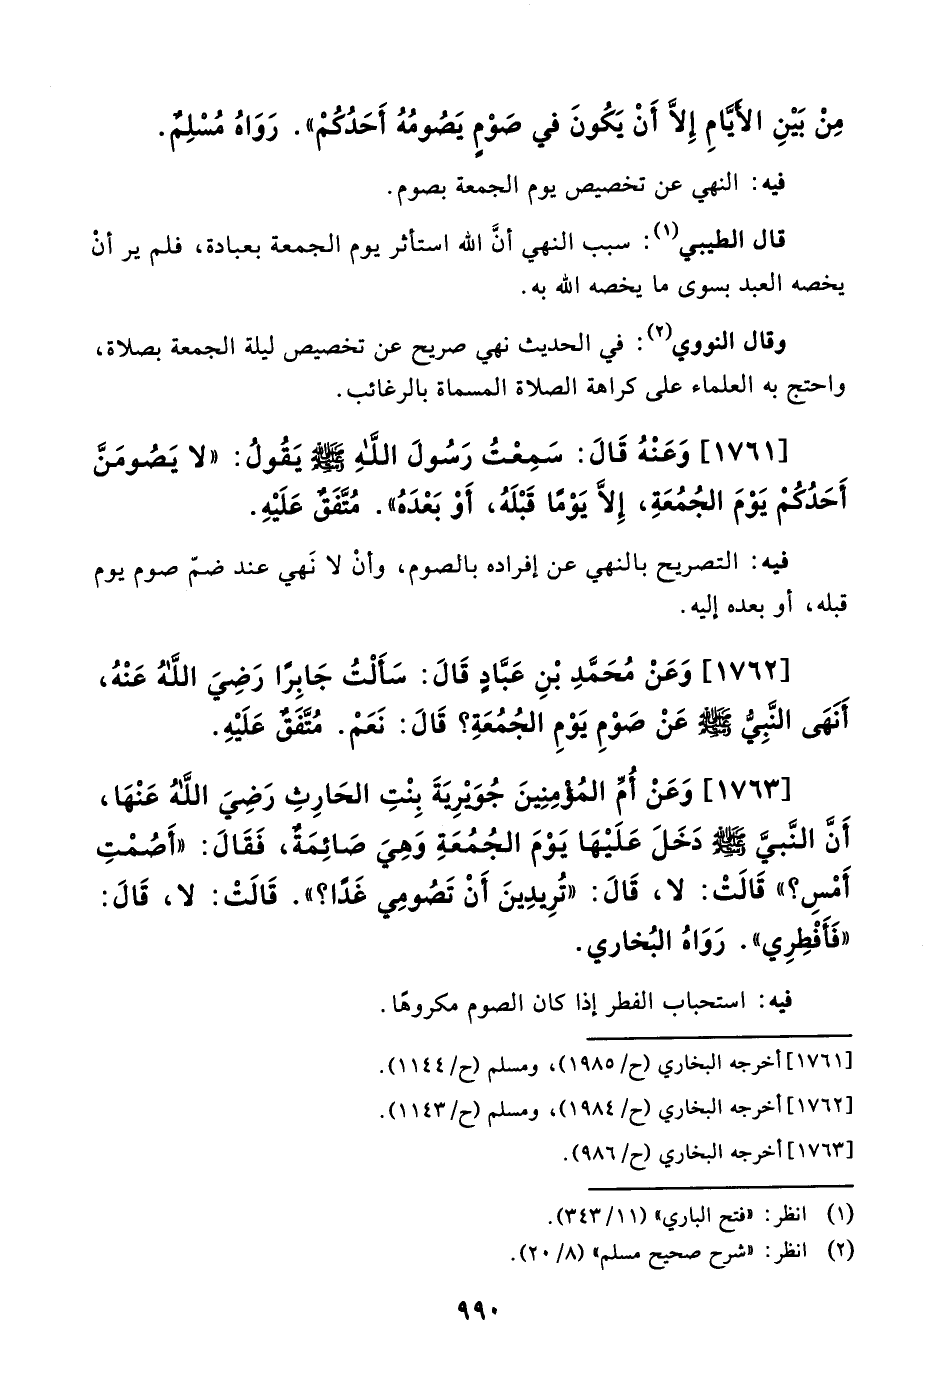 مِنْ بَيْنِ الأَيَّامِ إِلاَّ أَنْ يَكُونَ في صَوْمٍ يَصُومُهُ أَحَدُكُمْ». رَوَاهُ مُسْلِمٌ.
فيه: النهي عن تخصيص يوم الجمعة بصوم.
قال الطيبي(١): سبب النهي أنَّ الله استأثر يوم الجمعة بعبادة، فلم ير أنْ
يخصه العبد بسوى ما يخصه الله به.
وقال النووي(٢): في الحديث نهي صريح عن تخصيص ليلة الجمعة بصلاة،
واحتج به العلماء على كراهة الصلاة المسماة بالرغائب.
[١٧٦١] وَعَنْهُ قَالَ: سَمِعْتُ رَسُولَ اللَّهِ ﷺ يَقُولُ: «لا يَصُومَنَّ
أَحَدُكُمْ يَوْمَ الجُمُعَةِ، إِلاَّ يَوْمًا قَبْلَهُ، أَوْ بَعْدَهُ». مُتَّفَقٌ عَلَيْهِ.
فيه: التصريح بالنهي عن إفراده بالصوم، وأنْ لا نَهي عند ضمّ صوم يوم
قبله، أو بعده إليه.
[١٧٦٢] وَعَنْ مُحَمَّدِ بْنِ عَبَّادٍ قَالَ: سَأَلْتُ جَابِرًا رَضِيَ اللَّهُ عَنْهُ،
أَنَهَى النَّبِيُّ ﷺ عَنْ صَوْمِ يَوْمِ الجُمُعَةِ؟ قَالَ: نَعَمْ. مُتَّفَقٌ عَلَيْهِ.
[١٧٦٣] وَعَنْ أُمِّ المُؤْمِنِينَ جُوَيْرِيَةَ بِنْتِ الحَارِثِ رَضِيَ اللَّهُ عَنْهَا،
أَنَّ النَّبِيَّ ﷺ دَخَلَ عَلَيْهَا يَوْمَ الجُمُعَةِ وَهِيَ صَائِمَةٌ، فَقَالَ: «أَصُمْتِ
أَمْسِ؟» قَالَتْ: لا، قَالَ: «تُرِيدِينَ أَنْ تَصُومِي غَدًا؟». قَالَتْ: لا، قَالَ:
«فَأَفْطِرِي». رَوَاهُ البُخاري.
فيه: استحباب الفطر إذا كان الصوم مكروهًا.
[١٧٦١] أخرجه البخاري (ح/ ١٩٨٥)، ومسلم (ح/ ١١٤٤).
[١٧٦٢] أخرجه البخاري (ح/ ١٩٨٤)، ومسلم (ح/ ١١٤٣).
[١٧٦٣] أخرجه البخاري (ح/ ٩٨٦).
(١) انظر: «فتح الباري» (١١/ ٣٤٣).
(٢) انظر: «شرح صحيح مسلم» (٨/ ٢٠).
٩٩٠